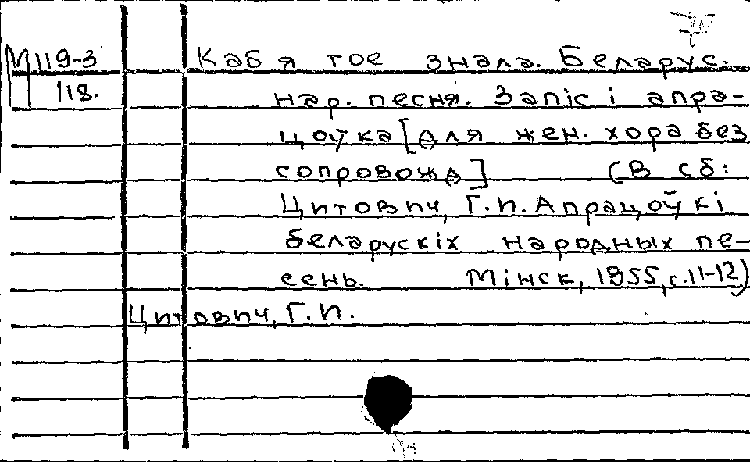 М119-3 Каб я тое знала. Беларус.
118. нар. песня. Запіс і апра-
цоўка [для жен. хора без
сопровожд] (В сб:
Цитович, Г.И. Апрацоўкі
беларускіх народных пе-
сень. Мінск, 1955, с.11-12)
Цитович, Г.И.